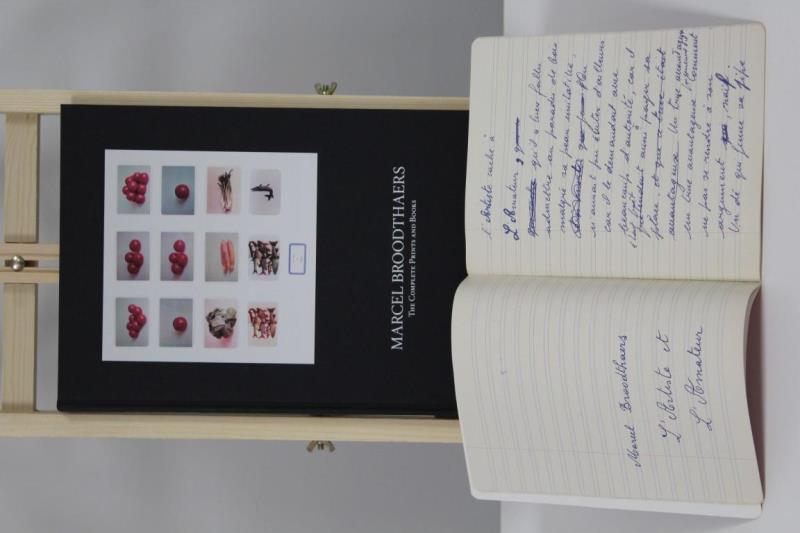 MARCEL BROODTHAERS
THE COMPLETE PRINTS AND BOOKS
Marcel Broodthaers
L'Artiste et
L'Amateur
l'Artiste cache à
L'Amateur,
qu'il a bien fallu
admettre au paradis de bois
malgré sa peau imitative.
n'aurait pu éviter d'ailleurs
car il le demandait avec
beaucoup d'autorité, car il
ainsi payer sa
place et que
avantageuse. Un
avantageuse comment
ne pas se rendre à son
argument naïf.
Un dé qui fume sa pipe